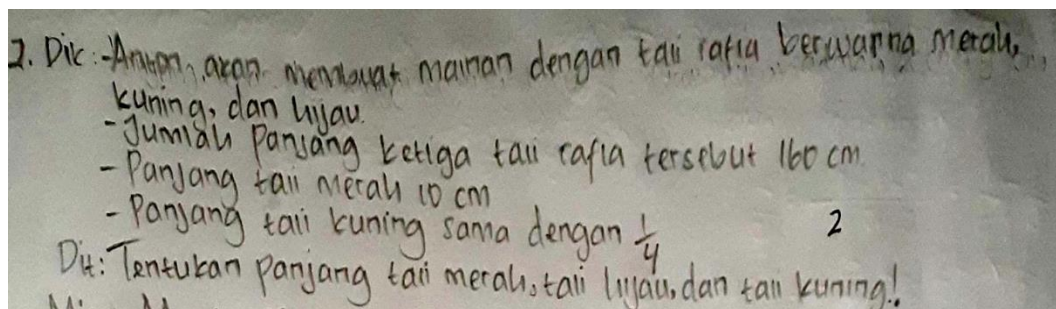 2. Dik: - Anton, akan membuat mainan dengan tali rafia berwarna merah,
kuning, dan hijau.
- Jumlah Panjang ketiga tali rafia tersebut 160 cm
- Panjang tali merah 10 cm
- Panjang tali kuning sama dengan 1/4
2
Dit: Tentukan panjang tali merah, tali hijau, dan tali kuning!